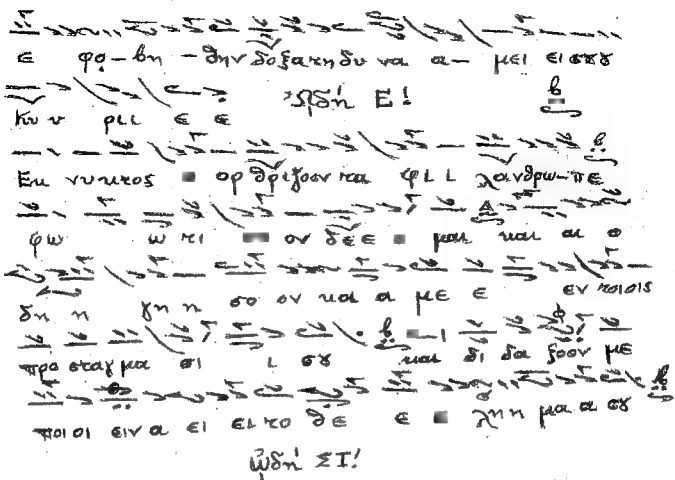 ε φο βη θην δοξα τη δυ να α μει ει σȣ
Κυ υ ρι ι ε ε
Ὠδή Ε!
Εκ νυκτος ορ θρι ζοον τα φι ι λανθρω πε
φω ω τι ον δε ε μαι και αι ο
δη η γη η σο ον και α με ε εν τοιοις
προ σταγμα σι ι σȣ και δι δα ξοον με
ποι οι ειν α ει ει το θε ε λη η μα α σȣ
ᾠδή ΣΤ!